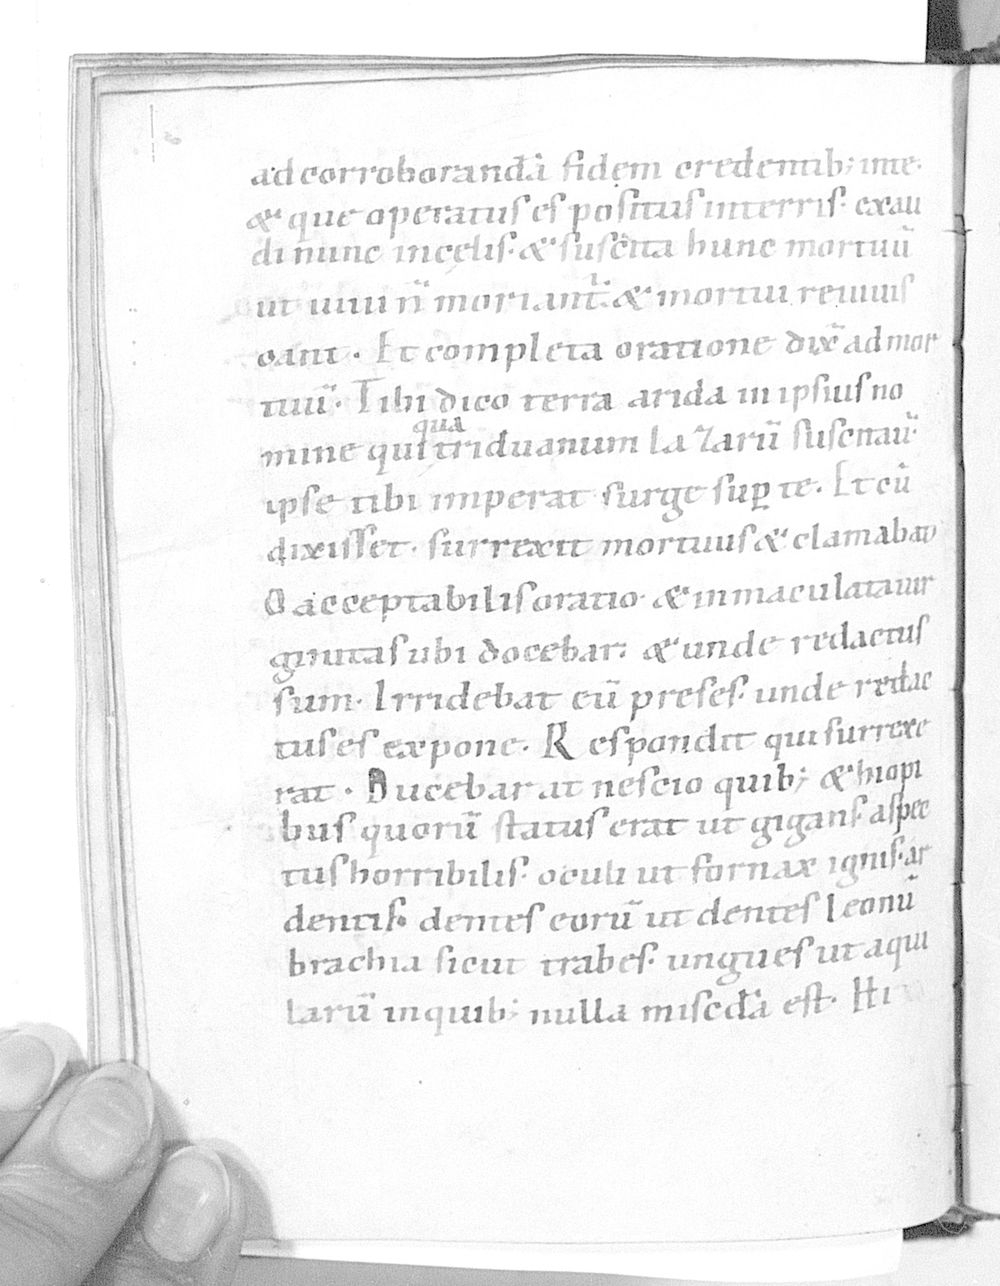 ad corroborandā fidem credentib; inte.
& que operatus es positus interris. exau
di nunc incelis. & suscita hunc mortuū
ut uiui n̄ moriant̄. & mortui reuiuis
cant. Et completa oratione dix̄ ad mor
tuū. Tibi dico terra arida in ipsius no
qua
mine qui triduanum lazarū suscitau̅
ipse tibi imperat surge sup te. Et cū
dixisset. surrexit mortuus & clamabat
O acceptabilis oratio. & inmaculata uir
ginitas ubi docebar. & unde redactus
sum. Irridebat eū preses. unde redac
tus es expone. Respondit qui surrexe
rat. Ducebar at nescio quib; &hiopi
bus quorū status erat ut gigans. aspec
tus horribilis. oculi ut fornax ignis. ar
dentis. dentes eorū ut dentes leonū
brachia sicut trabes. ungues ut aqui
larū inquib; nulla miscđa est. Hi